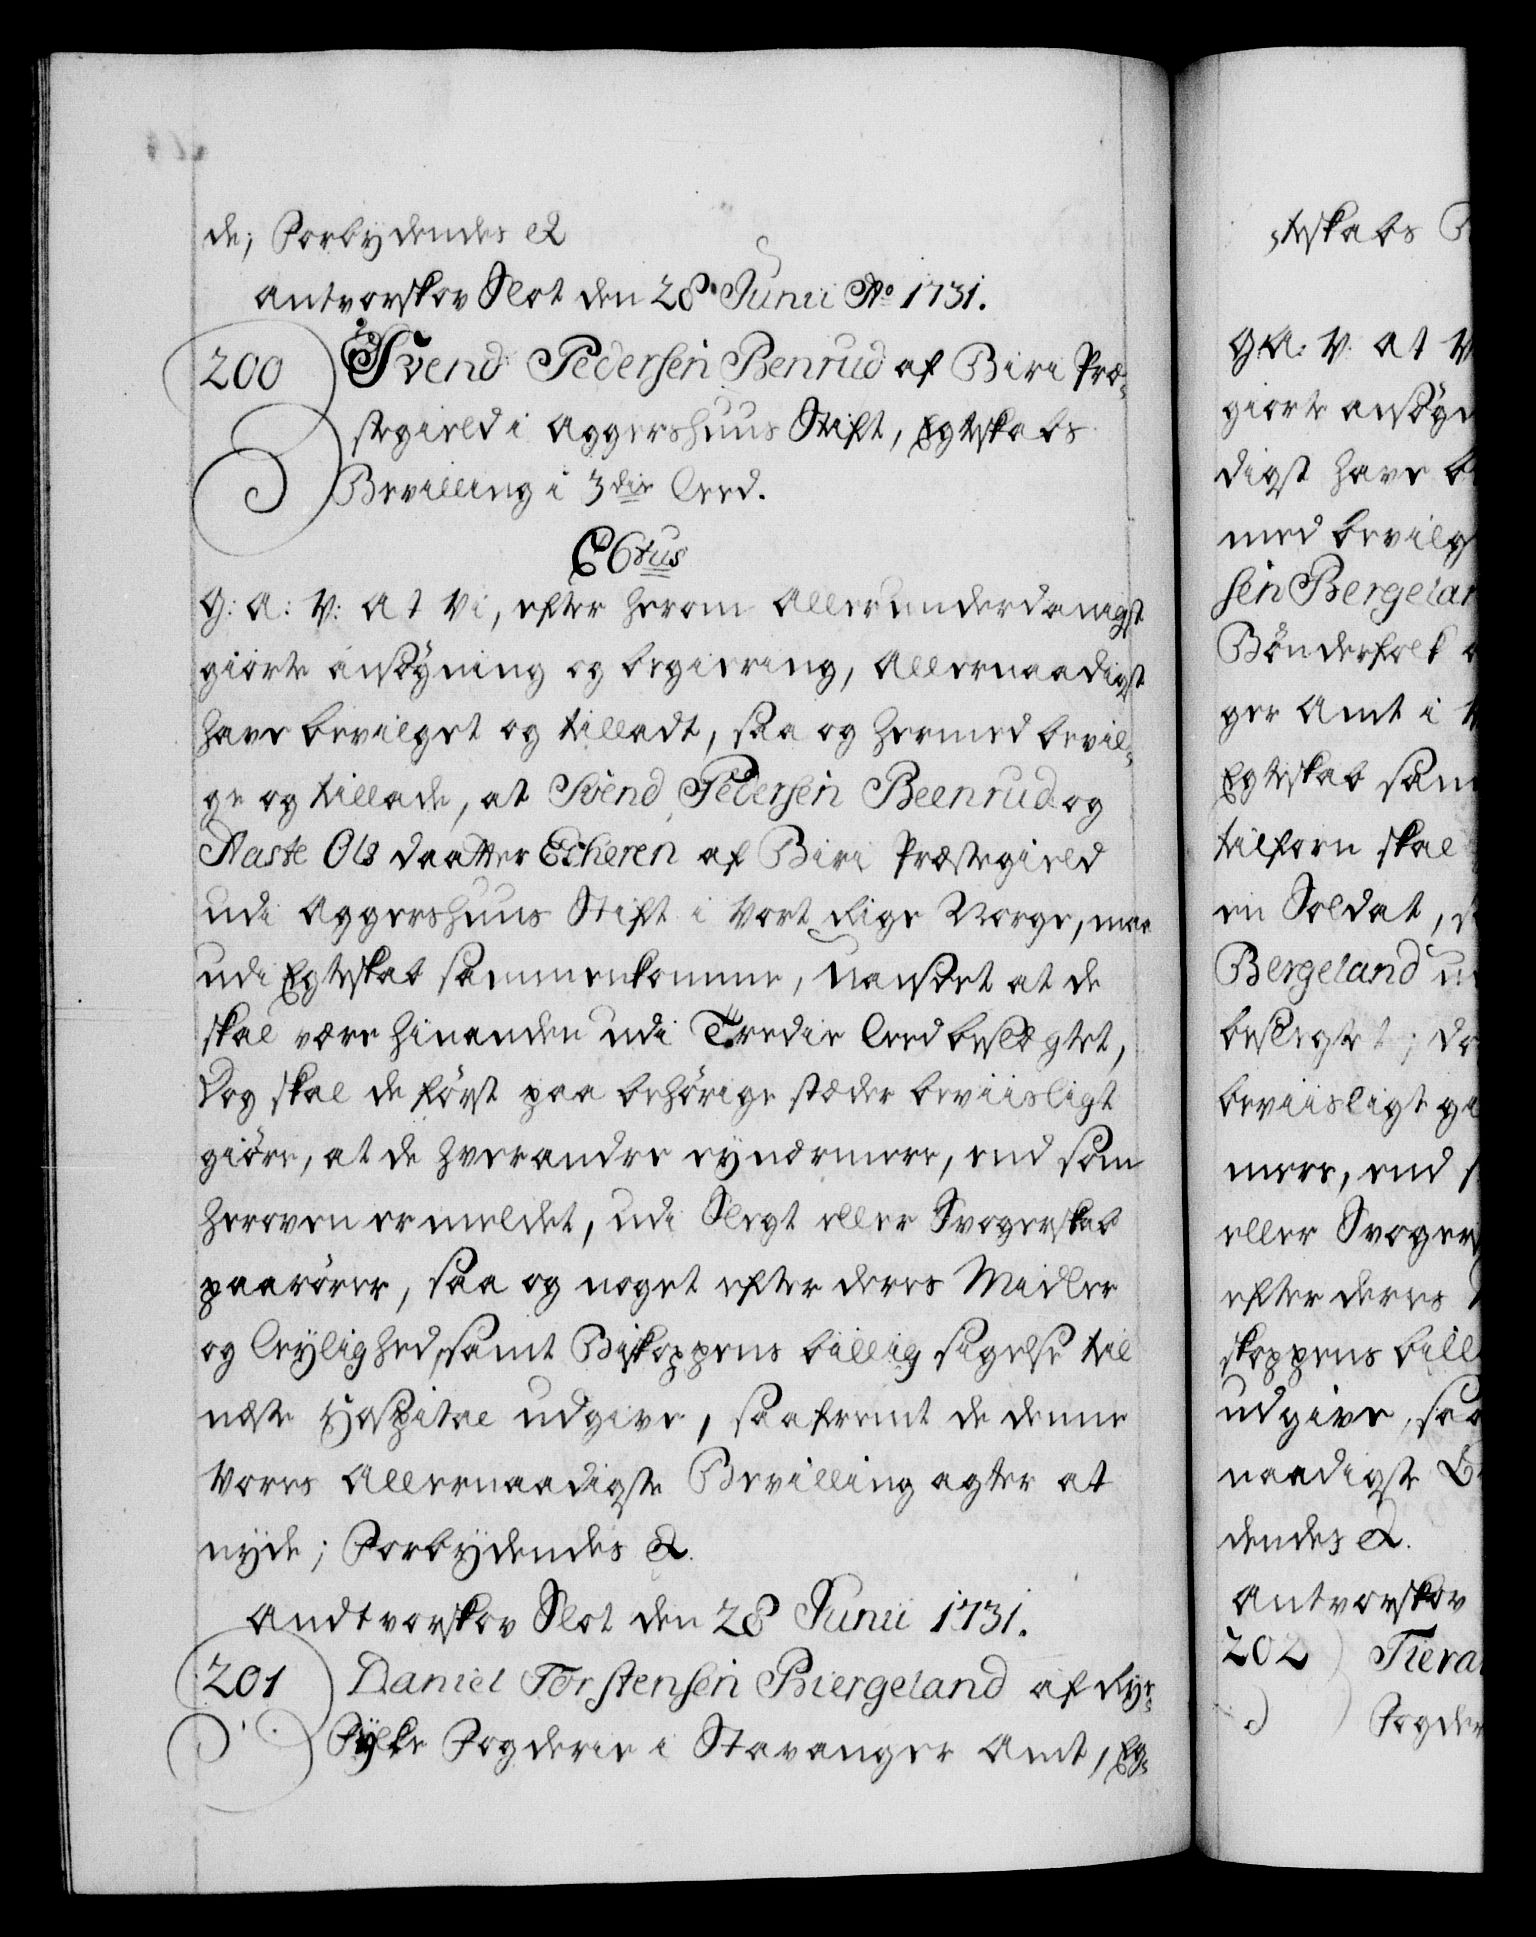 de; Forbydendes &
Antvorskov Slot den 28. Junii Ao 1731.
200 Svend Pedersen Benrud af Biri Præ-
stegield i Aggershuus Stift, Egteskabs
Bevilling i 3die Leed.
C6tus
G: A: V: At Vi, efter herom Allerunderdanigst
giorte ansøgning og begiering, Allernaadigst
have bevilget og tilladt, saa og hermed bevil-
ge og tillade, at Svend Pedersen Beenrud og
Aaste Ols daatter Echeren af Biri Præstegield
udi Aggershuus Stift i Vort Rige Norge, maa
udi Egteskab sammenkomme, uanseet at de
skal være hinanden udi Tredie Leed beslægtet,
Dog skal de först paa behörige stæder beviisligt
giöre, at de hverandre ey nærmere, end som
heroven er meldet, udi Slegt eller Svogerskab
paarörer, saa og noget efter deres Midler
og Leylighed, samt Biskoppens billig sigelse til
næste Hospital udgive, saafremt de denne
Vores Allernaadigste Bevilling agter at
nyde; Forbydendes &.
Andtvorskov Slot den 28 Junii 1731.
201 Daniel Torstensen Biergeland af Ry-
fylke Fogderie i Stavanger Amt, Eg-
teskabs B
G A: V: At V
giorte ansögn
digst have b
med bevilg
sen Bergelan
Bönderfolk
ger Amt i
Egteskab sam
tilforn skal
en Soldat,
Bergeland u
beslegtet; do
beviisligt gi
mere, end s
eller Svoger
efter deres
skoppens bill
udgive, saa
naadigste B
dendes &.
Antvorskov
202 Tiera
Fogder